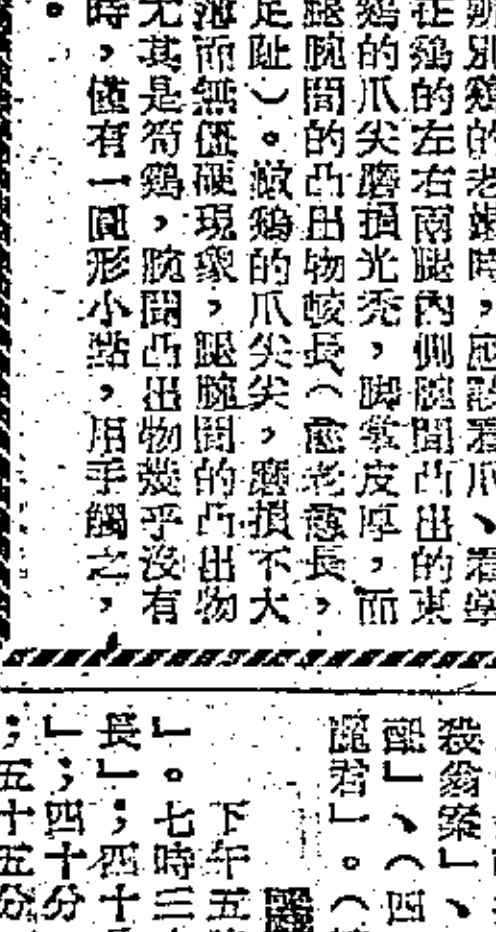 別鷄的老嫩時，應該看爪、看
在鷄的左右兩腿內側腕間凸出的東
鷄的爪尖磨損光禿，脚掌皮厚，而
腿腕間的凸出物較長（愈老愈長，
足趾）。嫩鷄的爪尖尖，磨損不大
薄而無僵硬現象，腿腕間的凸出物
尤其是筍鷄，腕間凸出物幾乎沒有
時，僅有一圓形小點，用手觸之，
。
殺翁案」、
醒」、（四
魔君」。（
下午五
」。七時三
長」；四十
」；四十分
；五十五分